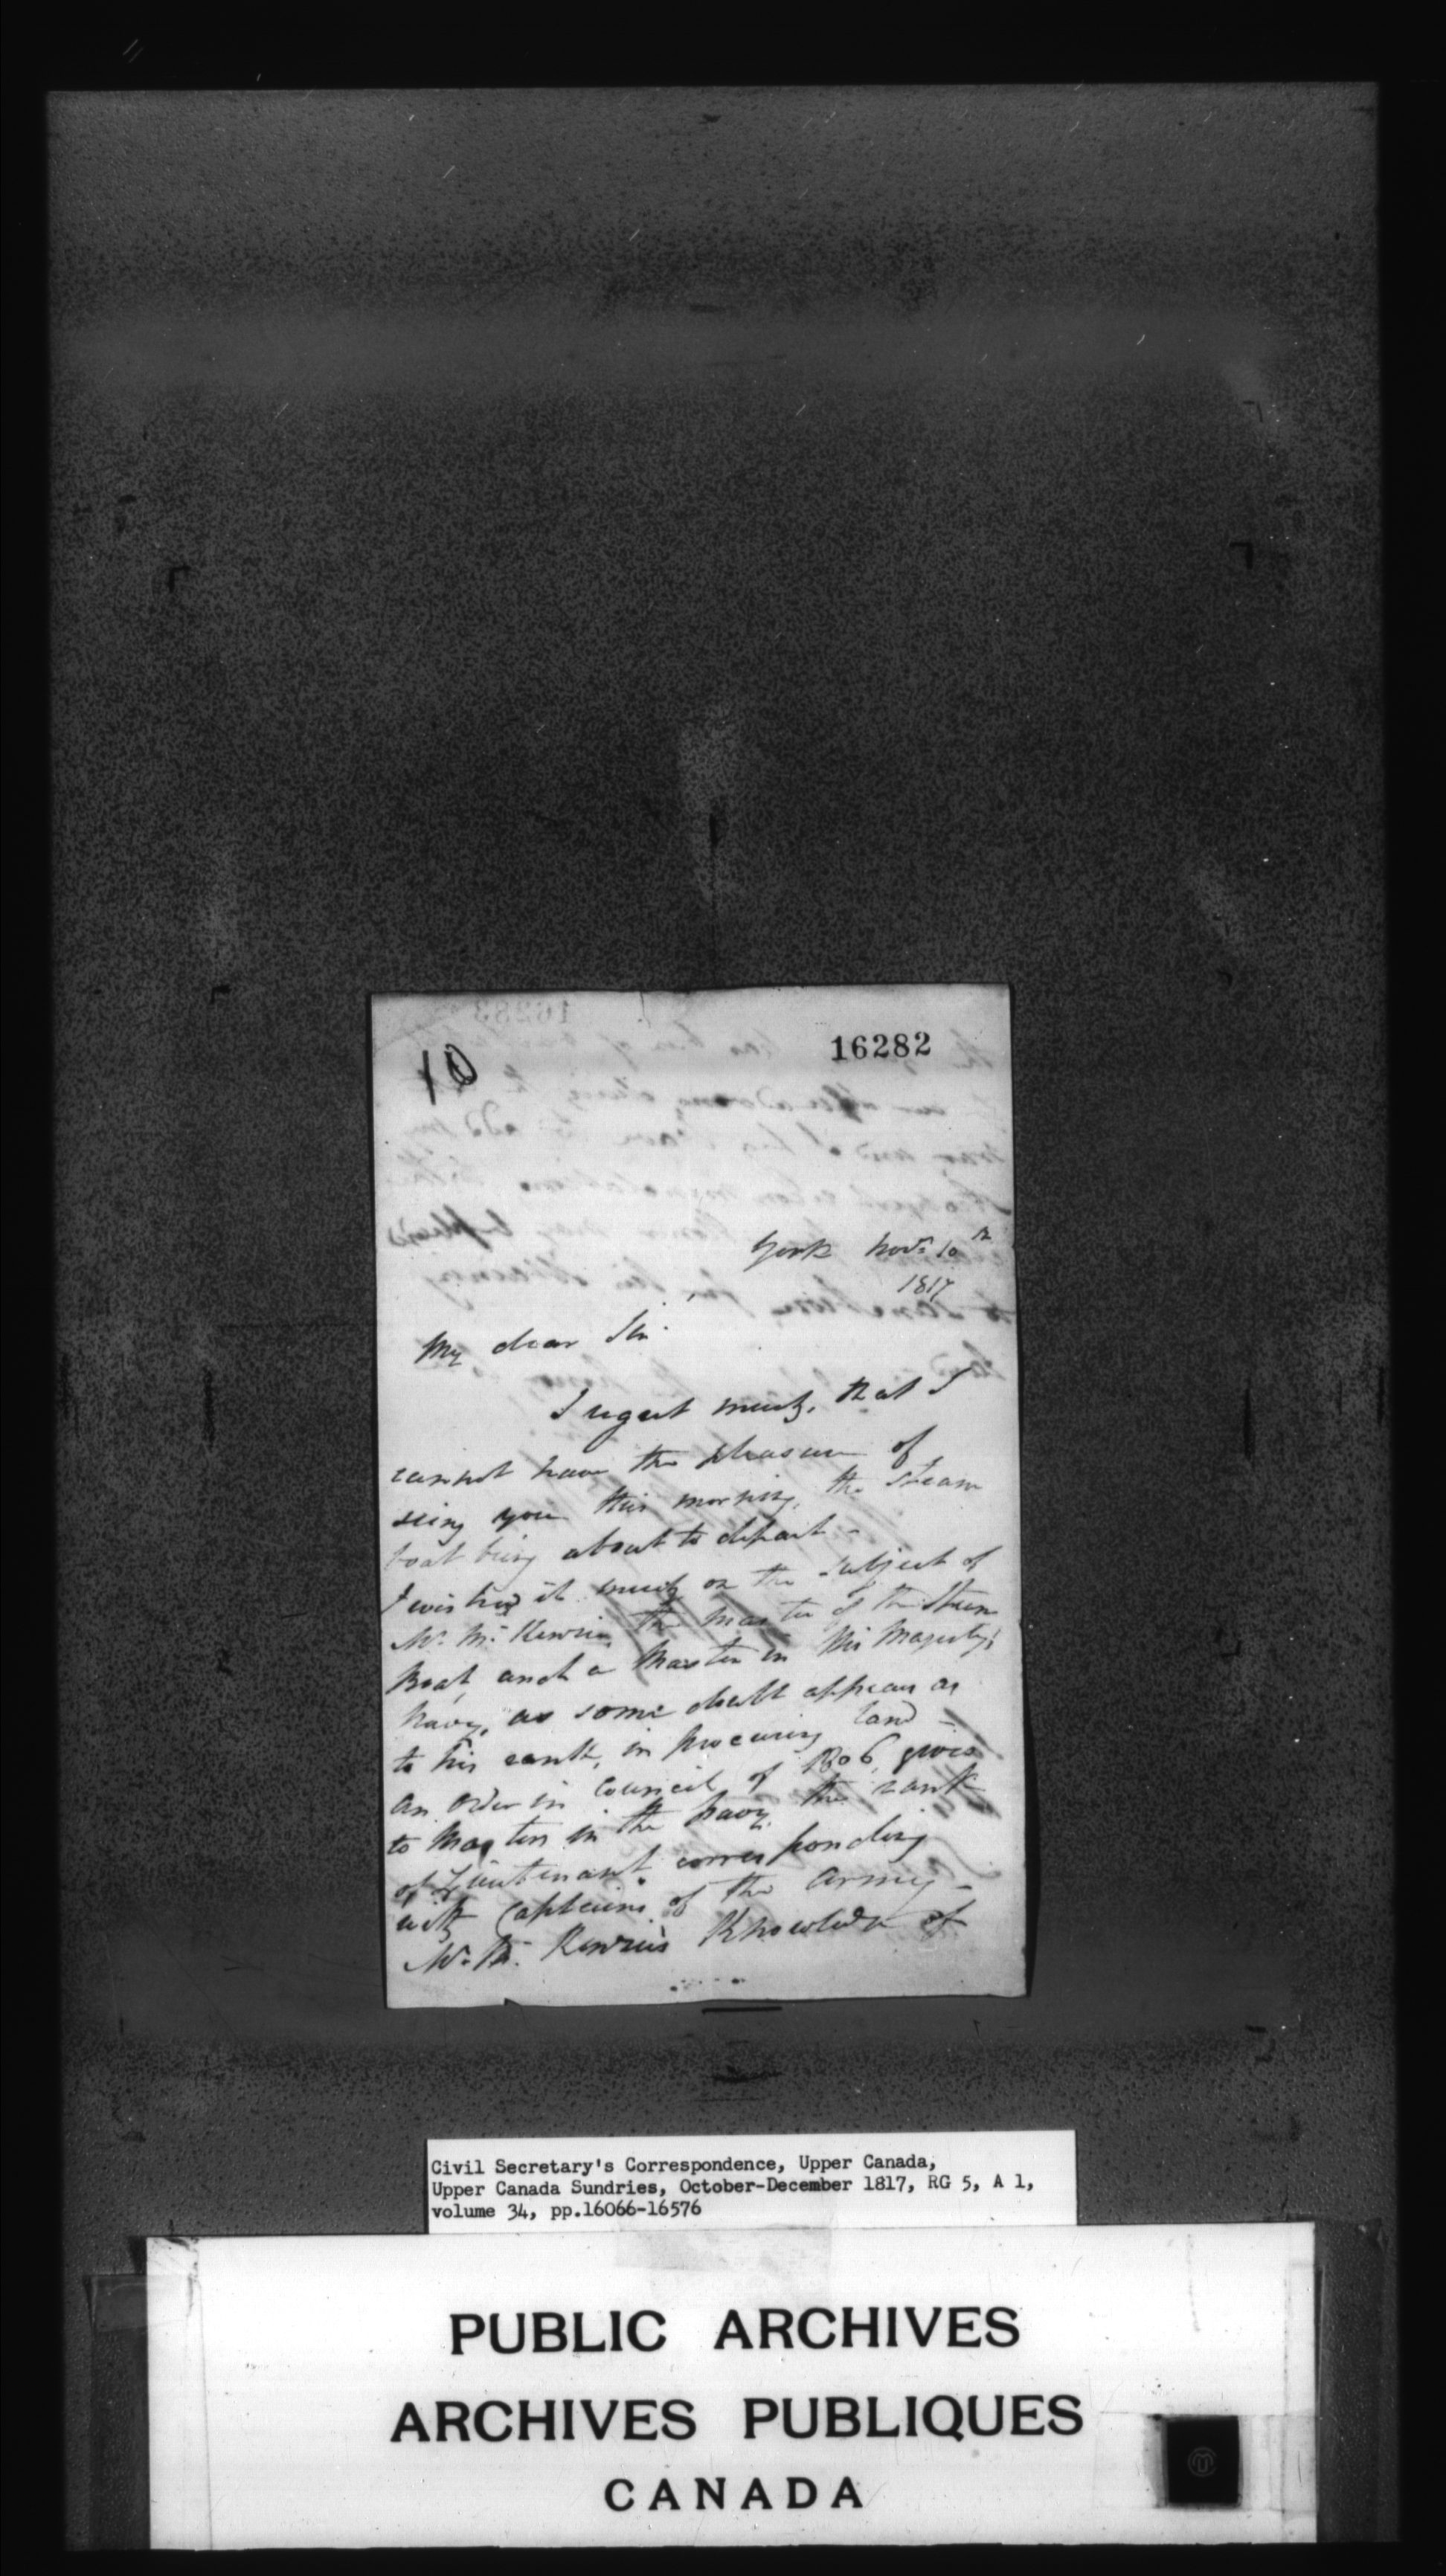 16282
10
York Novr. 10th
1817
My dear Sir
I regret much, that I
cannot have the pleasure of
seeing you this morning, the steam
boat being about to depart -
I wished it much on the subject of
Mr. McKenzie, the master of the Steam
Boat, and a Master in His Majesty's
Navy, as some doubt appears as
to his rank, in procuring land -
An order in Council of 1806, gives
to Masters in the Navy, the rank
of Lieutenant corresponding
with Captains of the Army -
Mr. McKenzie's Knowledge of
Civil Secretary's Correspondence, Upper Canada,
Upper Canada Sundries, October-December 1817, RG 5, A 1,
volume 34, pp.16066-16576
PUBLIC ARCHIVES
ARCHIVES PUBLIQUES
CANADA